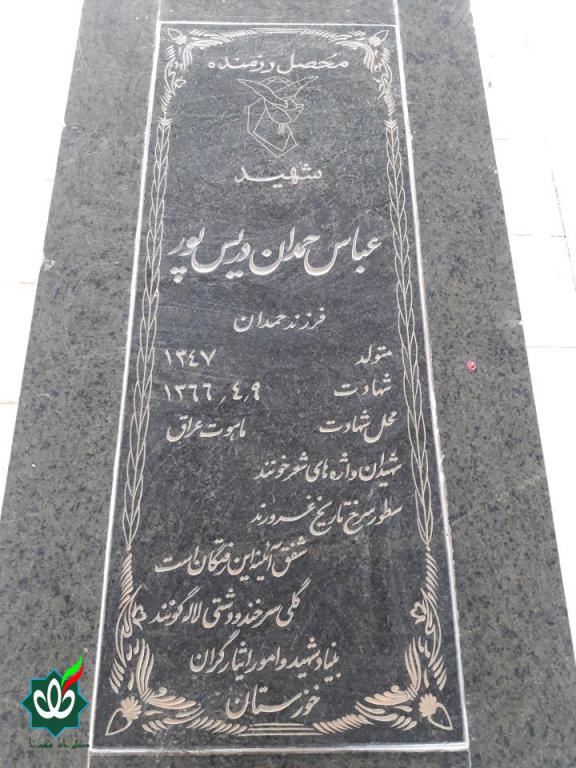 محصل رزمنده
شهید
عباس حمدان دریس پور
فرزند حمدان
متولد ۱۳٤۷
شهادت ۱۳٦٦٫٤٫۹
محل شهادت ماهوت عراق
شهیدان واژه های شعر خونند
سطور سرخ تاریخ غرورند
شفق آئینه این رفتگان است
گلی سرخند و دشتی لاله گونند
بنیاد شهید و امور ایثارگران
خوزستان